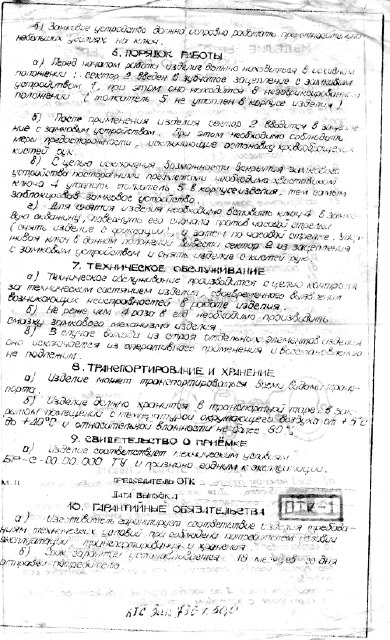 б) Замковое устройство должно исправно работать при относительно
небольших усилиях на ключ.
6. ПОРЯДОК РАБОТЫ
а) Перед началом работы изделие должно находиться в исходном
положении: сектор 2 введен в зубчатое зацепление с замковым
устройством 1, при этом оно находится в незаблокированном
положении ( толкатель 5 не утоплен в корпусе изделия )
б) После применения изделия сектор 2 вводится в зацепле-
ние с замковым устройством. При этом необходимо соблюдать
меры предосторожности, исключающие остановку кровообращения
кистей рук.
в) С целью исключения возможности вскрытия замкового
устройства посторонними предметами необходимо хвостовиком
ключа 4 утопить толкатель 5 в корпусе изделия, тем самым
заблокировав замковое устройство.
г) Для снятия изделия необходимо вставить ключ 4 в замко-
вую скважину, повернуть его сначала против часовой стрелки
( снять изделие с фиксации ) и затем по часовой стрелке. Удер-
живая ключ в данном положении вывести сектор 2 из зацепления
с замковым устройством и снять изделие с кистей рук.
7. ТЕХНИЧЕСКОЕ ОБСЛУЖИВАНИЕ
а) Техническое обслуживание производится с целью контроля
за техническим состоянием изделия, своевременного выявления
возникающих неисправностей в работе изделия.
б) Не реже чем 4 раза в год необходимо производить
смазку замкового механизма изделия.
в) В случае выхода из строя отдельных элементов изделия
оно исключается из оперативного применения и восстановлению
не подлежит.
8. ТРАНСПОРТИРОВАНИЕ И ХРАНЕНИЕ
а) Изделие может транспортироваться всеми видами транс-
порта.
б) Изделие должно хранится в транспортной таре в зак-
рытом помещении с температурой окружающего воздуха от +5°С
до +40°С и относительной влажности не более 80%.
9. СВИДЕТЕЛЬСТВО О ПРИЁМКЕ
а) Изделие соответствует техническим условиям
БР-С-00.00.000 ТУ и признано годным к эксплуатации.
М.П. Председатель ОТК
Дата выпуска
ПТК-1
10. ГАРАНТИЙНЫЕ ОБЯЗАТЕЛЬСТВА
а) Изготовитель гарантирует соответствие изделия требова-
ниям технических условий при соблюдении потребителем условий
эксплуатации, транспортирования и хранения.
б) Срок гарантии устанавливается 18 месяцев со дня
отправки потребителю.